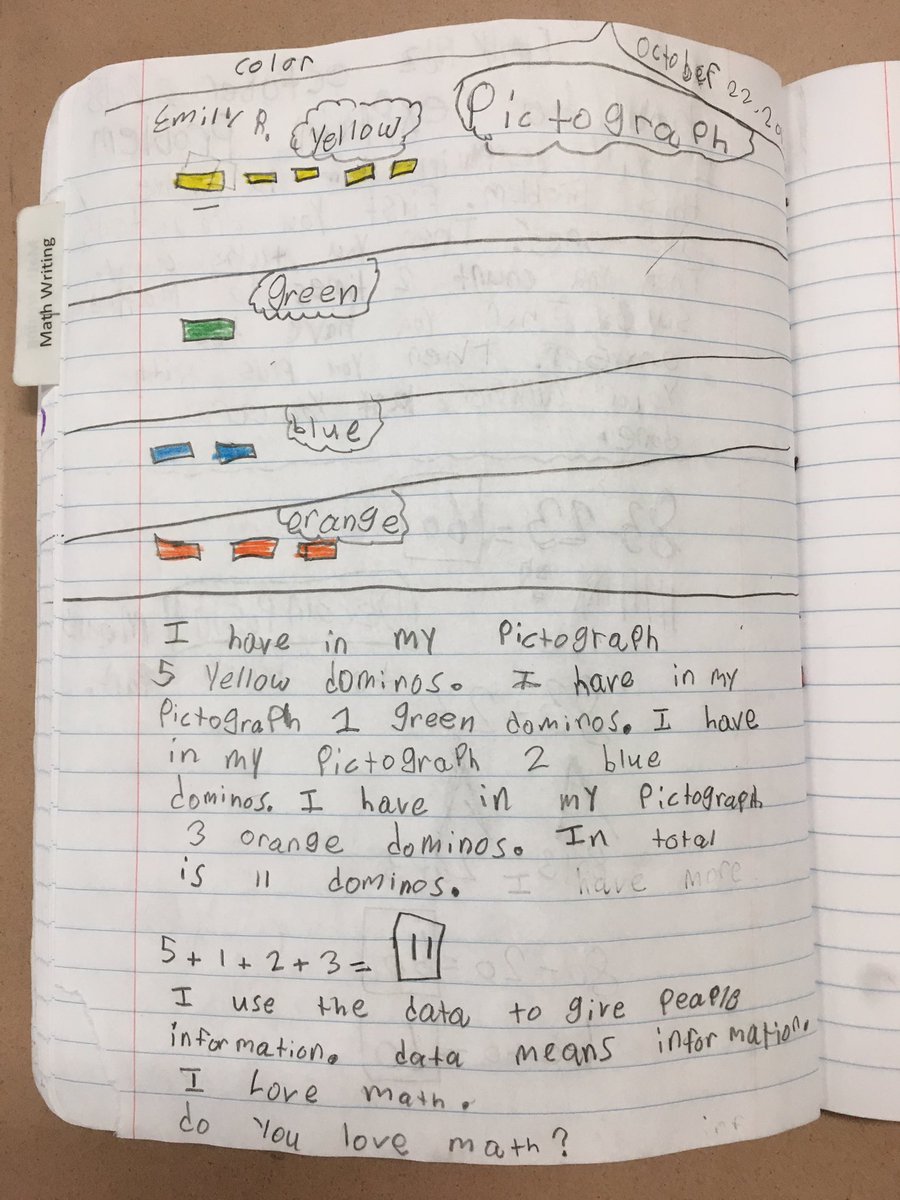 color
October 22, 20
Emily R.
Yellow
Pictograph
Math Writing
green
blue
orange
I have in my Pictograph
5 Yellow dominos. I have in my
Pictograph 1 green dominos. I have
in my Pictograph 2 blue
dominos. I have in my Pictograph
3 orange dominos. In total
is 11 dominos. I have more
5+1+2+3= 11
I use the data to give peaple
information. data means information.
I Love math.
do you love math?